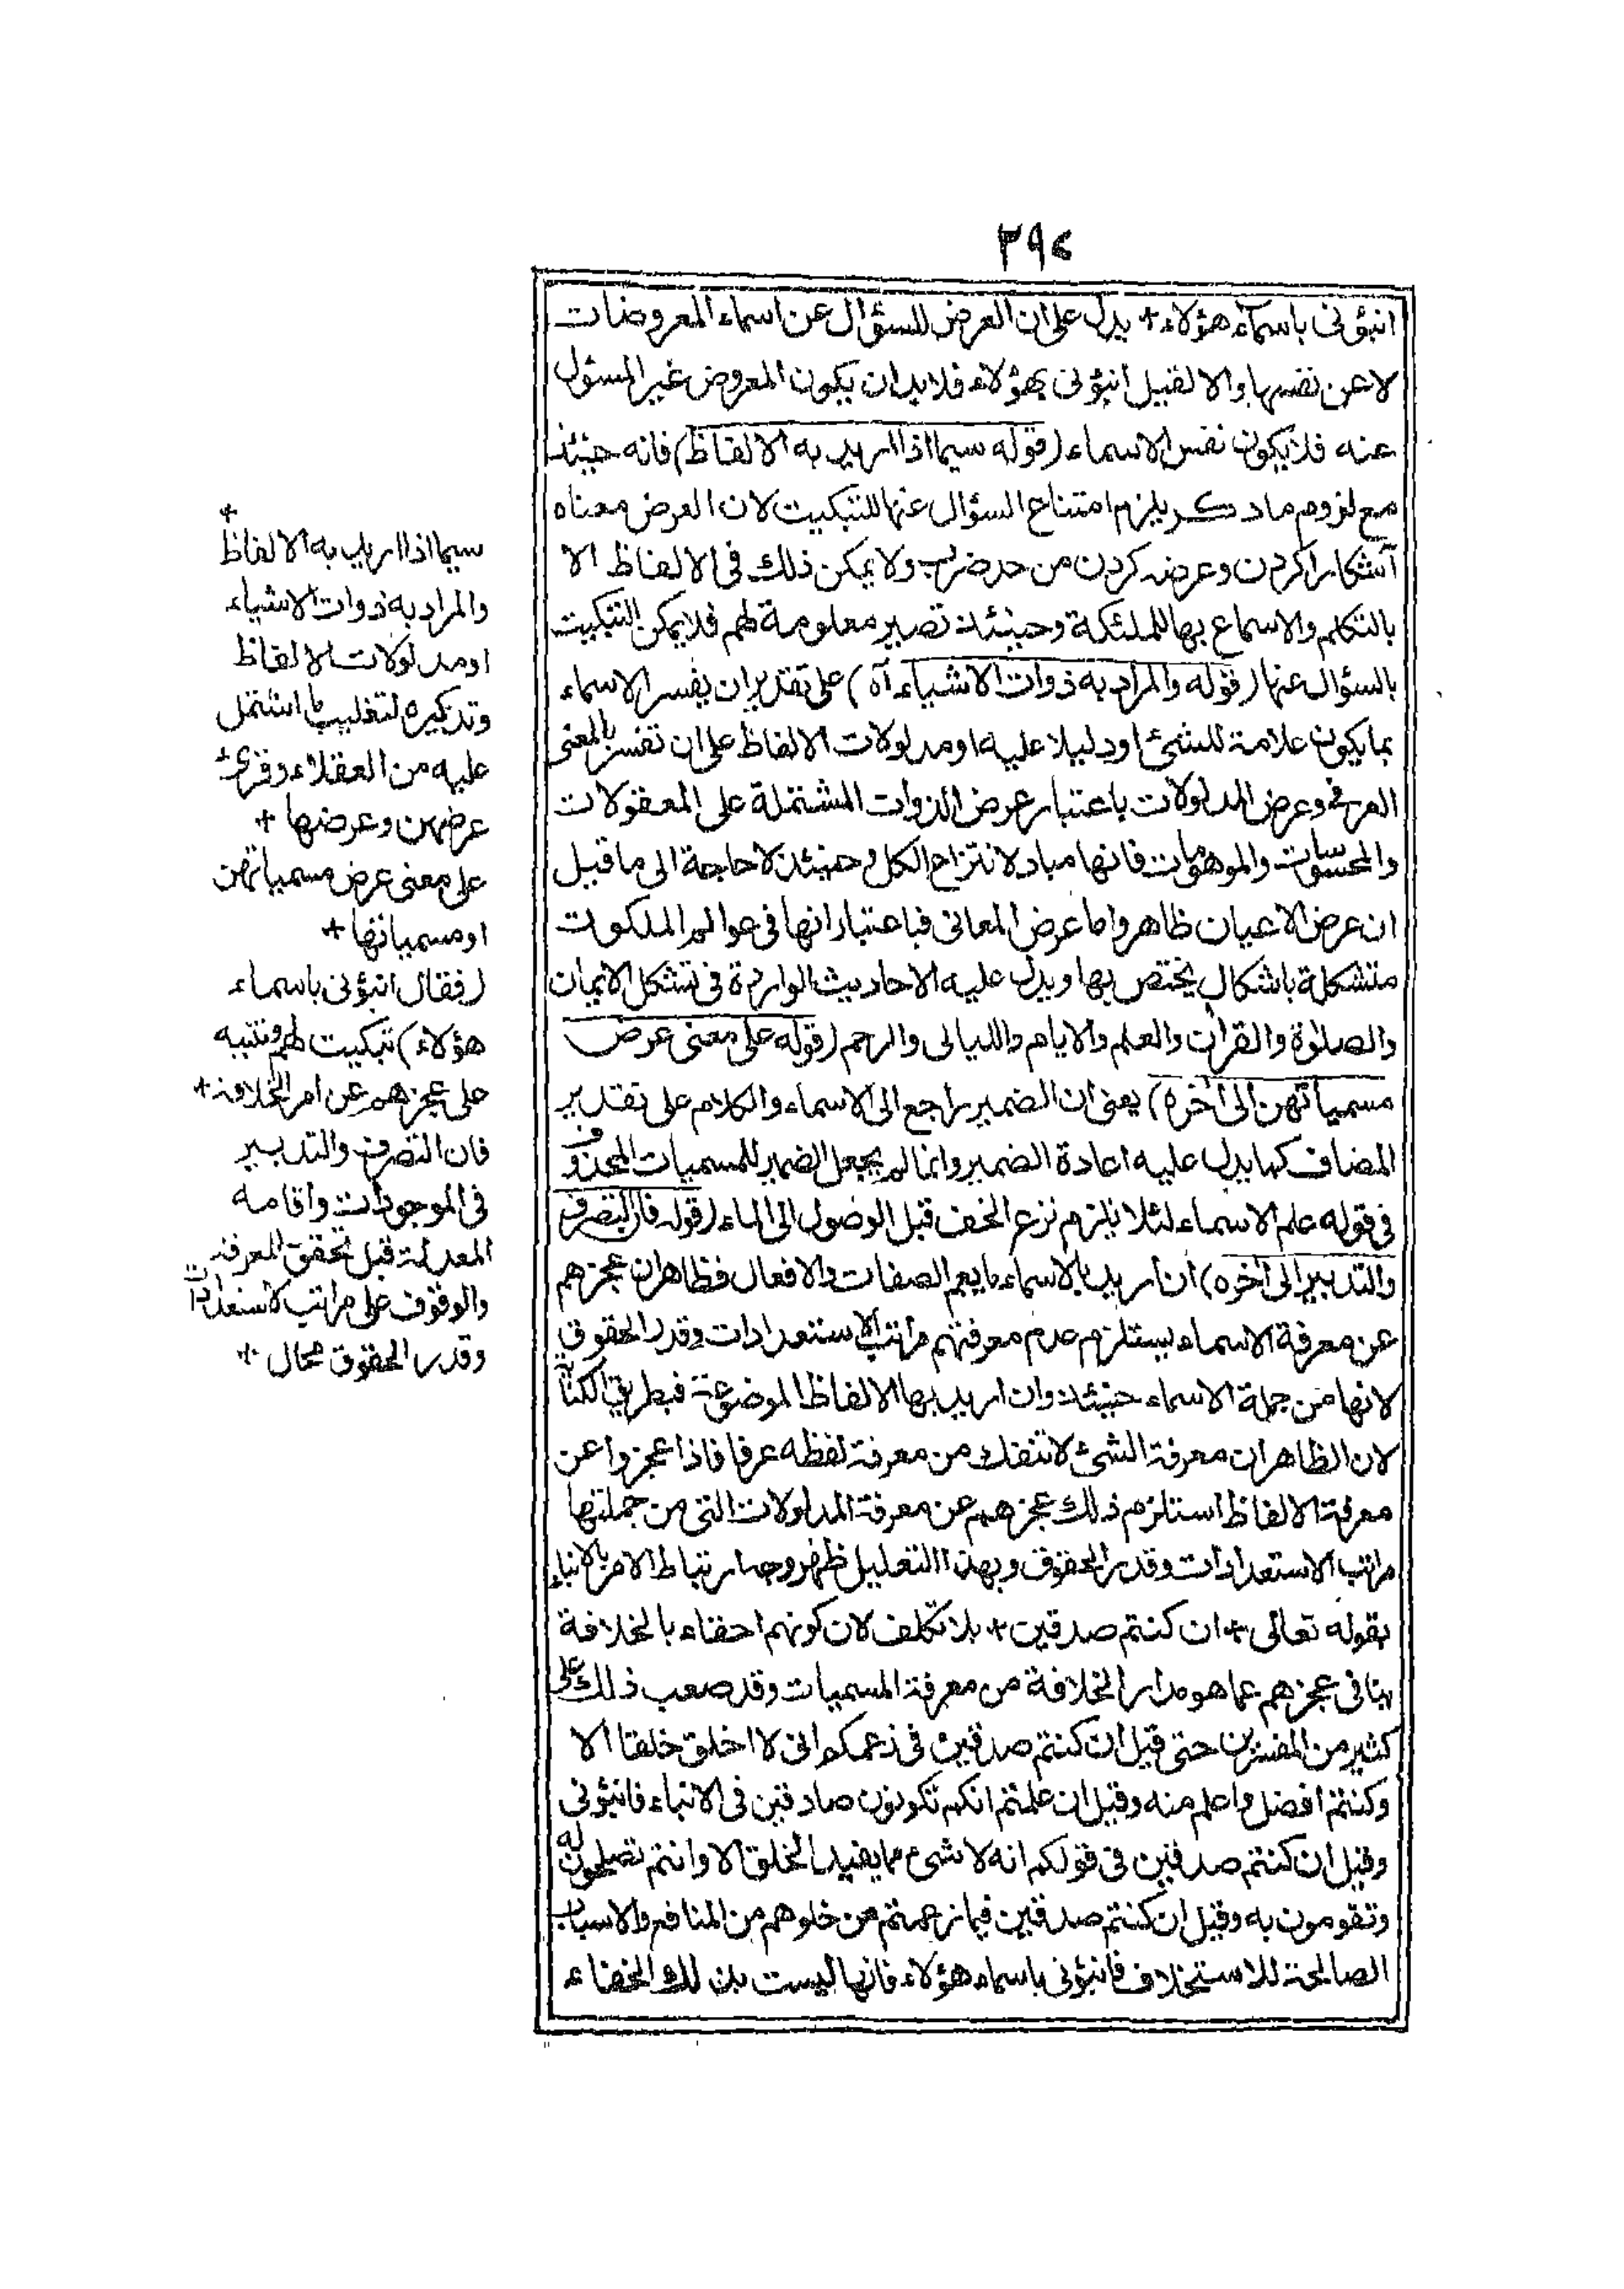 ٣٩٤
انبؤنى باسمآء هؤلاء + يدل على ان العرض للسؤال عن اسماء المعروضات
لا عن نفسها والا لقيل انبؤنى بهؤلاء فلابد ان يكون المعروض غير المسئول
عنه فلا يكون نفس الاسماء (قوله سيما اذا اريد به الالفاظ) فانه حينئذ
مع لزوم ما ذكر يلزم امتناع السؤال عنها للتبكيت لان العرض معناه
آشكارا كردن وعرضه كردن من حد ضرب ولا يمكن ذلك فى الالفاظ الا
بالتكلم والاسماع بها للملئكة وحينئذ تصير معلومة لهم فلا يمكن التبكيت
بالسؤال عنها (قوله والمراد به ذوات الاشياء آه) على تقدير ان يفسر الاسماء
بما يكون علامة للشئ او دليلا عليه او مدلولات الالفاظ على ان تفسر بالمعنى
العرفى وعرض المدلولات باعتبار عرض الذوات المشتملة على المعقولات
والمحسوسات والموهومات فانها مباد لانتزاع الكل وحينئذ لا حاجة الى ما قيل
ان عرض الاعيان ظاهر واما عرض المعانى فباعتبار انها فى عوالم الملكوت
متشكلة باشكال يختص بها ويدل عليه الاحاديث الواردة فى تشكل الايمان
والصلوة والقرآن والعلم والايام والليالى والرحم (قوله على معنى عرض
مسمياتهن الى آخره) يعنى ان الضمير راجع الى الاسماء والكلام على تقدير
المضاف كما يدل عليه اعادة الضمير وانما لم يجعل الضمير للمسميات المحذوف
فى قوله علم الاسماء لئلا يلزم نزع الخف قبل الوصول الى الماء (قوله فان التصرف
والتدبير الى آخره) ان اريد بالاسماء ما يعم الصفات والافعال فظاهر ان عجزهم
عن معرفة الاسماء يستلزم عدم معرفتهم مراتب الاستعدادات وقدر الحقوق
لانها من جملة الاسماء حينئذ وان اريد بها الالفاظ الموضوعة فبطريق الكناية
لان الظاهر ان معرفة الشئ لا تنفك من معرفة لفظه عرفا فاذا عجزوا عن
معرفة الالفاظ استلزم ذلك عجزهم عن معرفة المدلولات التى من جملتها
مراتب الاستعدادات وقدر الحقوق وبهذا التعليل ظهر وجه ارتباط الامر بالانباء
بقوله تعالى + ان كنتم صدقين + بلا تكلف لان كونهم احقاء بالخلافة
ينافى عجزهم عما هو مدار الخلافة من معرفة المسميات وقد صعب ذلك على
كثير من المفسرين حتى قيل ان كنتم صدقين فى زعمكم انى لا اخلق خلقا الا
وكنتم افضل واعلم منه وقيل ان علمتم انكم تكونون صادقين فى الانباء فانبؤنى
وقيل ان كنتم صدقين فى قولكم انه لا شئ مما يفيد الخلق الا وانتم تصلحون له
وتقومون به وقيل ان كنتم صدقين فيما زعمتم من خلوهم من المنافع والاسباب
الصالحة للاستخلاف فانبؤنى باسماء هؤلاء فانها ليست بذلك الخفاء
+
سيما اذا اريد به الالفاظ
والمراد به ذوات الاشياء
او مدلولات الالفاظ
وتذكيره لتغليب ما اشتمل
عليه من العقلاء وقرئ
عرضهن وعرضها +
على معنى عرض مسمياتهن
او مسمياتها +
(فقال انبؤنى باسماء
هؤلاء) تبكيت لهم وتنبيه
على عجزهم عن امر الخلافة +
فان التصرف والتدبير
فى الموجودات واقامه
المعدلة قبل تحقق المعرفة
والوقوف على مراتب الاستعدادات
وقدر الحقوق محال +